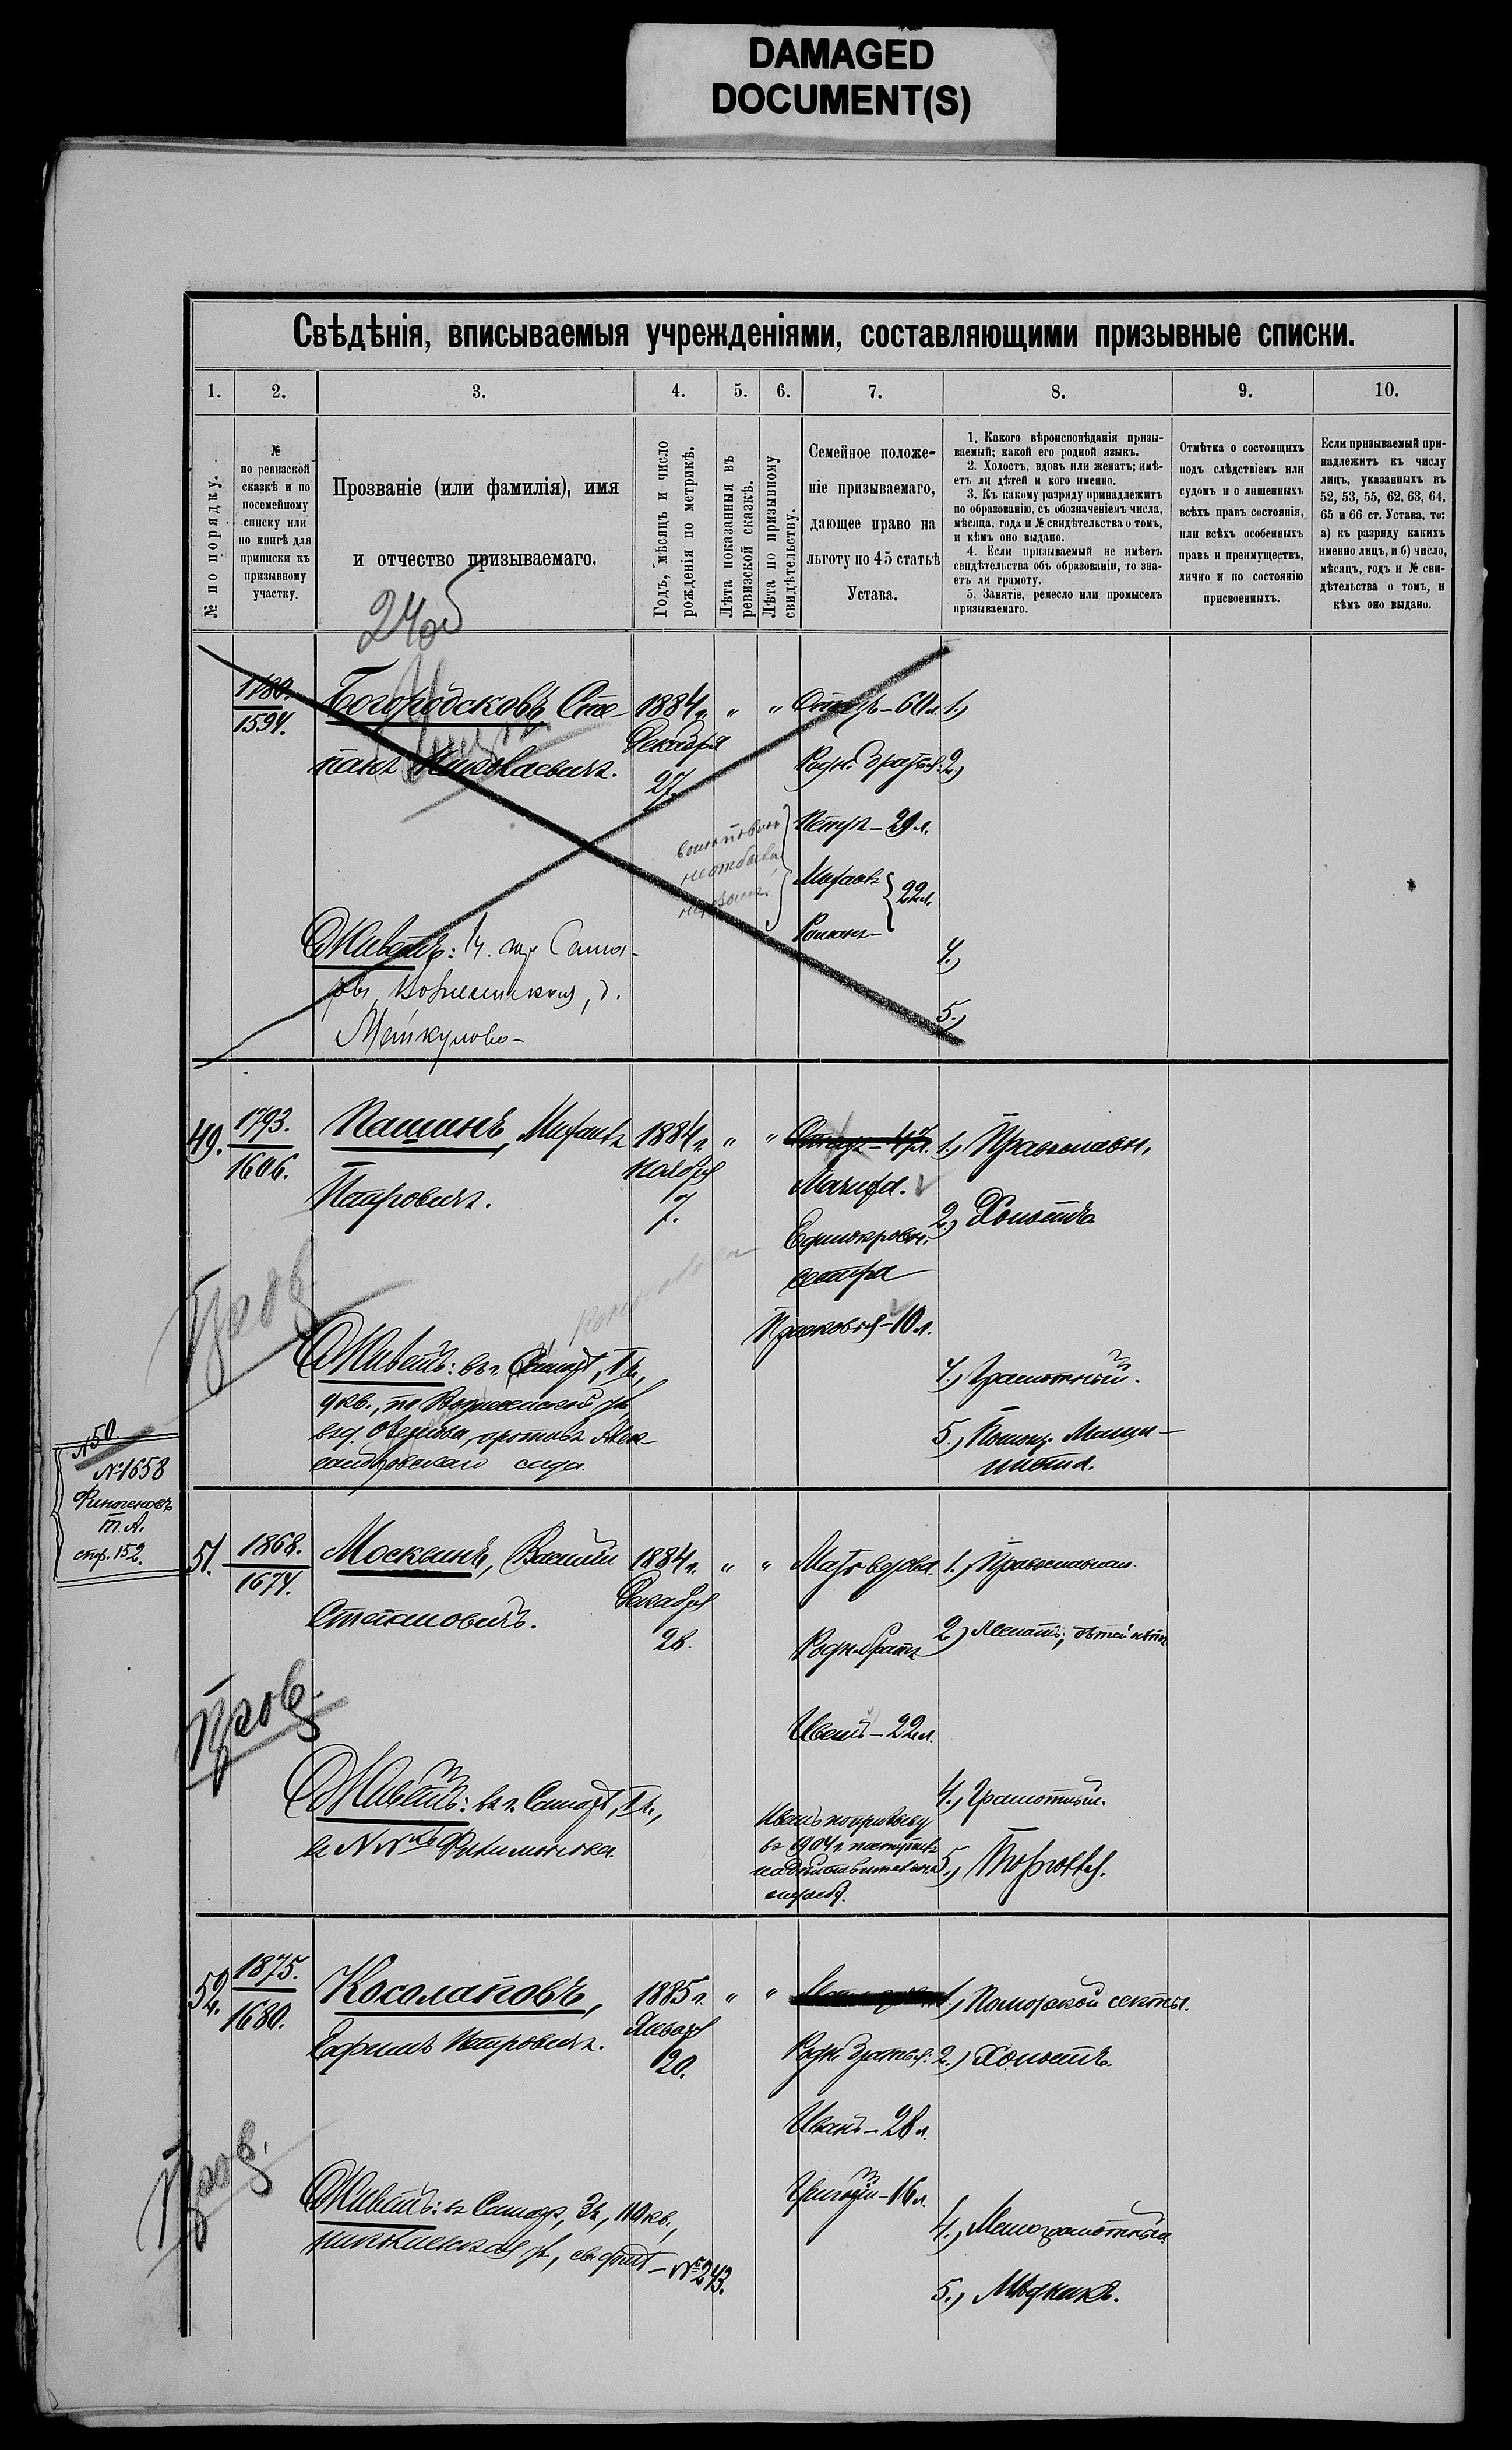 DAMAGED
DOCUMENT(S)
Свѣдѣнія, вписываемыя учрежденіями, составляющими призывные списки.
1. 2. 3. 4. 5. 6. 7. 8. 9. 10.
№ по порядку.
№
по ревизской
сказкѣ и по
посемейному
списку или
по книгѣ для
приписки къ
призывному
участку.
Прозваніе (или фамилія), имя
и отчество призываемаго.
Годъ, мѣсяцъ и число
рожденія по метрикѣ.
Лѣта показанныя въ
ревизской сказкѣ.
Лѣта по призывному
свидѣтельству.
Семейное положе-
ніе призываемаго,
дающее право на
льготу по 45 статьѣ
Устава.
1. Какого вѣроисповѣданія призы-
ваемый; какой его родной языкъ.
2. Холостъ, вдовъ или женатъ; имѣ-
етъ ли дѣтей и кого именно.
3. Къ какому разряду принадлежитъ
по образованію, съ обозначеніемъ числа,
мѣсяца, года и № свидѣтельства о томъ,
и кѣмъ оно выдано.
4. Если призываемый не имѣетъ
свидѣтельства объ образованіи, то зна-
етъ ли грамоту.
5. Занятіе, ремесло или промыселъ
призываемаго.
Отмѣтка о состоящихъ
подъ слѣдствіемъ или
судомъ и о лишенныхъ
всѣхъ правъ состоянія,
или всѣхъ особенныхъ
правъ и преимуществъ,
лично и по состоянію
присвоенныхъ.
Если призываемый при-
надлежитъ къ числу
лицъ, указанныхъ въ
52, 53, 55, 62, 63, 64,
65 и 66 ст. Устава, то:
а) къ разряду какихъ
именно лицъ, и б) число,
мѣсяцъ, годъ и № сви-
дѣтельства о томъ, и
кѣмъ оно выдано.
1780.
1594.
Богородсковъ, Сте-
панъ Николаевичъ.
1884 г.
Декабря
27.
" "
Отецъ - 60 л.
Родн. братья:
Петръ - 29 л.
Михаилъ
Романъ
22 л.
1.)
2.)
4.)
5.)
Живетъ:
49.
1793.
1606.
Пашинъ, Михаилъ
Петровичъ.
1884 г.
Ноября
7.
" "
Отецъ - 47 л.
Мачиха.
Единокровн.
сестра
Прасковья - 10 л.
1.) Православн.
2.) Холостъ
4.) Грамотный.
5.) Помощ. Маши-
ниста.
Пров.
Живетъ: въ г. Самарѣ, 1 ч.,
9 кв., по Вознесенской ул.
противъ Алек-
сандровскаго сада.
№ 50.
№ 1658
Финогеновъ
т. А.
стр. 152.
51.
1868.
1674.
Москвинъ, Василій
Степановичъ.
1884 г.
Декабря
28.
" "
Мать вдова.
Родн. братъ
Иванъ - 22 л.
Иванъ по призыву
въ 1904 г. поступилъ
на дѣйствительн.
службу.
1.) Православный.
2.) Женатъ; дѣтей нѣтъ
4.) Грамотный.
5.) Торговля.
Пров.
Живетъ: въ г. Самарѣ, 1 ч.,
52.
1875.
1680.
Косолаповъ,
Ефимъ Петровичъ.
1885 г.
Января
20.
" "
Родн. братья:
Иванъ - 28 л.
Григорій - 16 л.
1.) Поморской секты.
2.) Холостъ.
4.) Малограмотный
5.) Мѣдникъ.
Пров.
Живетъ: въ Самарѣ, 3 ч., 110 кв.,
№ 243.